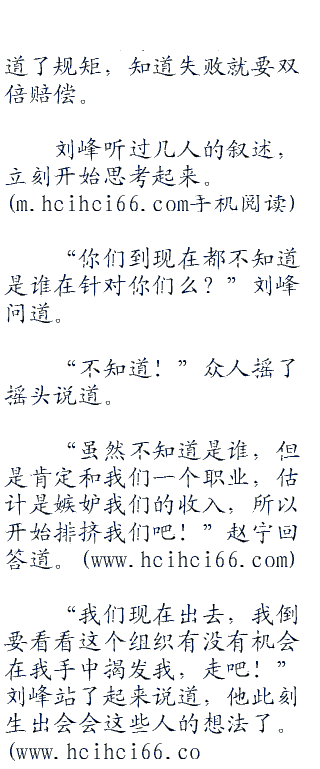 道了规矩，知道失败就要双
倍赔偿。
刘峰听过几人的叙述，
立刻开始思考起来。
(m.hcihci66.com手机阅读)
“你们到现在都不知道
是谁在针对你们么？” 刘峰
问道。
“不知道！” 众人摇了
摇头说道。
“虽然不知道是谁，但
是肯定和我们一个职业，估
计是嫉妒我们的收入，所以
开始排挤我们吧！” 赵宁回
答道。(www.hcihci66.com)
“我们现在出去，我倒
要看看这个组织有没有机会
在我手中揭发我，走吧！”
刘峰站了起来说道，他此刻
生出会会这些人的想法了。
(www.hcihci66.co